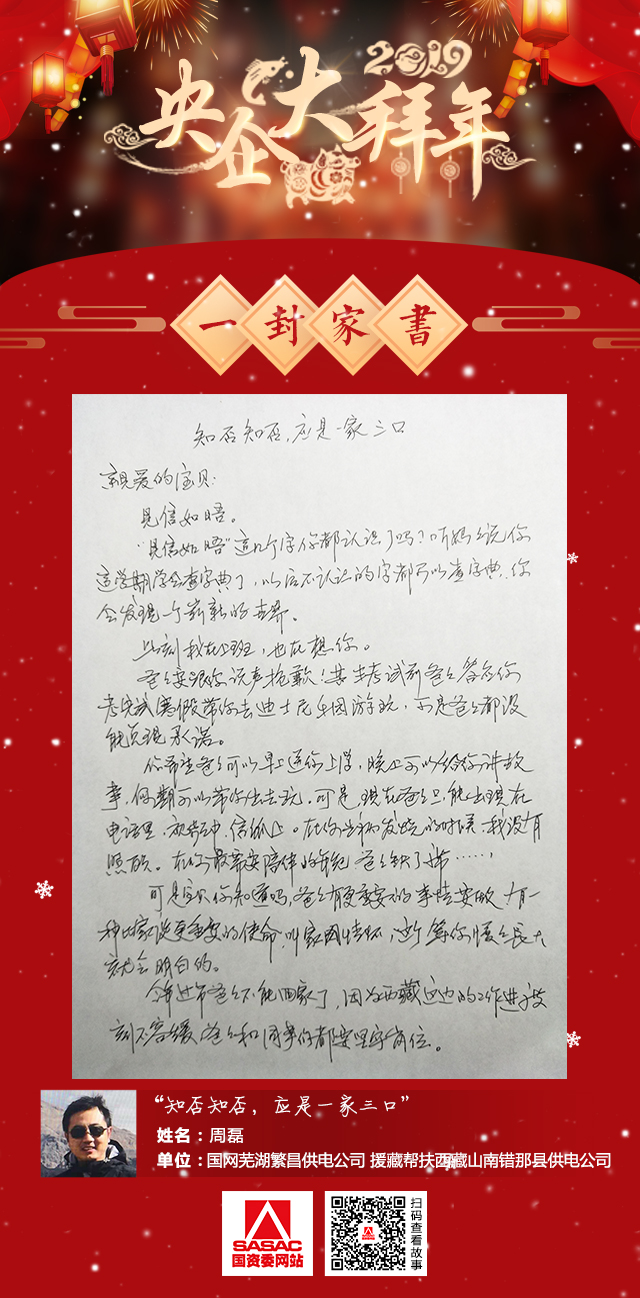 2019
央企大拜年
一封家書
知否知否,应是一家三口
亲爱的宝贝:
见信如晤。
“见信如晤”这几个字你都认识了吗?听妈妈说你
这学期学会查字典了,以后不认识的字都可以查字典,你
会发现一个崭新的世界。
此刻我在上班,也在想你。
爸爸要跟你说声抱歉!期末考试前爸爸答应你
考完试寒假带你去迪士尼乐园游玩,可是爸爸却没
能兑现承诺。
你希望爸爸可以早上送你上学,晚上可以给你讲故
事,假期可以带你出去玩。可是,现在爸爸只能出现在
电话里、视频中、信纸上。在你生病发烧的时候我没有
照顾。在你最需要陪伴的年纪爸爸缺了席……
可是宝贝你知道吗,爸爸有更重要的事情要做,有一
种比家说更重要的使命,叫家国情怀,等你慢慢长大
就会明白的。
今年过节爸爸不能回家了,因为西藏这边的工作进度
刻不容缓,爸爸和同事们都要坚守岗位。
“知否知否,应是一家三口”
姓名:周磊
单位:国网芜湖繁昌供电公司 援藏帮扶西藏山南错那县供电公司
SASAC
国资委网站
扫码查看故事